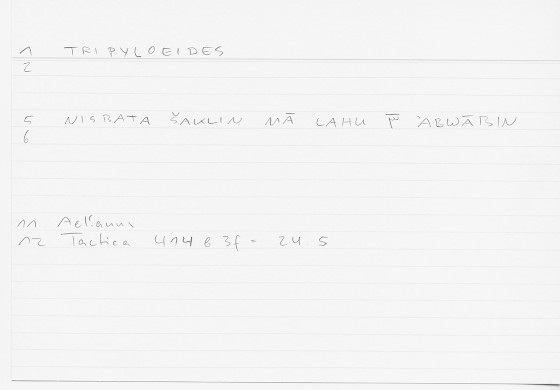 1 TRIPYLOEIDES
2
5 NISBATA ŠAKLIN MĀ LAHU 3̄ ʾABWĀBIN
6
11 Aelianus
12 Tactica 414 B 3f = 24.5